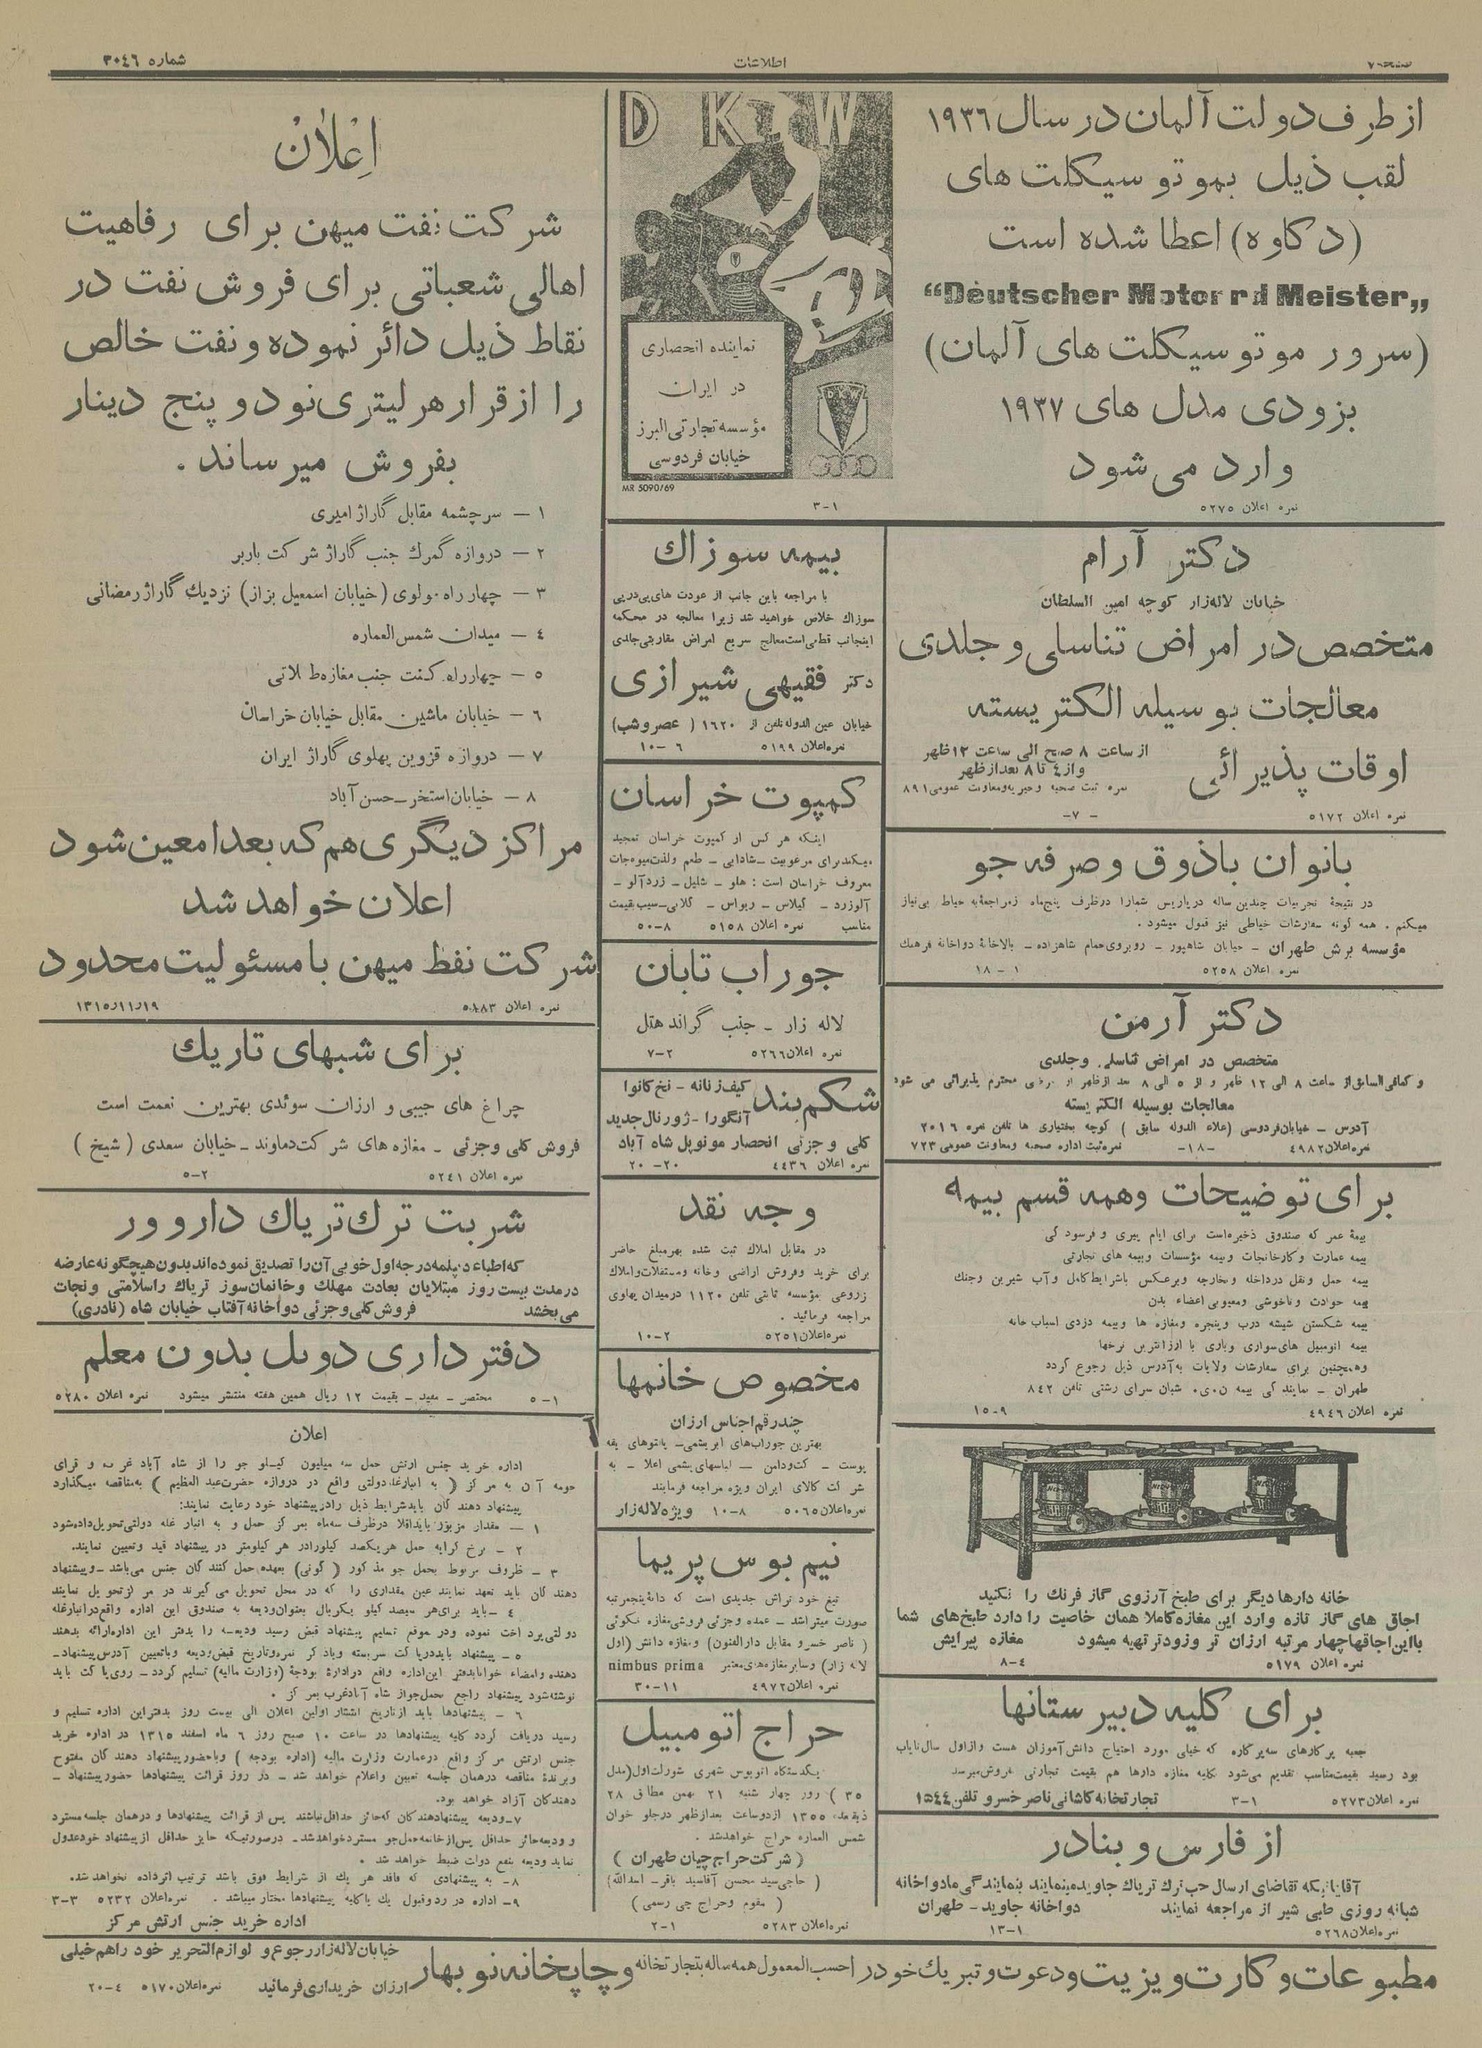 صفحه ۷
اطلاعات
شماره ۳۰٤٦
از طرف دولت آلمان در سال ۱۹۳٦
لقب ذیل بموتو سیکلت های
(دکاوه) اعطا شده است
“Deutscher Motorrd Meister„
(سرور موتوسیکلت های آلمان)
بزودی مدل های ۱۹۳۷
وارد می شود
نمره اعلان ۵۲۷۵
DKW
نماینده انحصاری
در ایران
مؤسسه تجارتی البرز
خیابان فردوسی
MR 5090/69
۳-۱
دکتر آرام
خیابان لاله زار کوچه امین السلطان
متخصص در امراض تناسلی و جلدی
معالجات بوسیله الکتریسته
اوقات پذیرائی
از ساعت ۸ صبح الی ساعت ۱۲ ظهر
و از ٤ تا ۸ بعد از ظهر
نمره ثبت صحیه و خیریه و معاونت عمومی ۸۹۱
نمره اعلان ۵۱۷۲
-۷-
بانوان باذوق و صرفه جو
در نتیجهٔ تجربیات چندین ساله در پاریس شما را در ظرف پنج ماه از مراجعه به خیاط بی نیاز
میکنم. همه گونه سفارشات خیاطی نیز قبول میشود.
مؤسسه برش طهران - خیابان شاهپور - روبروی حمام شاهزاده - بالاخانهٔ دواخانهٔ فرهنگ
نمره اعلان ۵۲۵۸
۱ - ۱۸
دکتر آرمن
متخصص در امراض تناسلی و جلدی
و کمافی السابق از ساعت ۸ الی ۱۲ ظهر و از ۵ الی ۸ بعد از ظهر از مرضی محترم پذیرائی می شود
معالجات بوسیله الکتریسته
آدرس - خیابان فردوسی (علاء الدوله سابق) کوچه بختیاری ها تلفن نمره ۲۰۱٦
نمره اعلان ٤۹۸۲
-۱۸-
نمره ثبت اداره صحیه و معاونت عمومی ۷۲۳
برای توضیحات و همه قسم بیمه
بیمهٔ عمر که صندوق ذخیره است برای ایام پیری و فرسودگی
بیمه عمارت و کارخانجات و بیمه مؤسسات و بیمه های تجارتی
بیمه حمل و نقل در داخله و خارجه و برعکس با شرایط کامل و آب شیرین و جنگ
بیمه حوادث و ناخوشی و معیوبی اعضاء بدن
بیمه شکستن شیشه درب و پنجره و مغازه ها و بیمه دزدی اسباب خانه
بیمه اتومبیل های سواری و باری با ارزانترین نرخها
و همچنین برای سفارشات ولایات به آدرس ذیل رجوع گردد
طهران - نمایندگی بیمه سرای رشتی تلفن ۸٤۲
نمره اعلان ٤۹٤٦
۱۵-۹
خانه دارها دیگر برای طبخ آرزوی گاز فرنگ را نکنید
اجاق های گاز تازه وارد این مغازه کاملا همان خاصیت را دارد طبخ های شما
با این اجاقها چهار مرتبه ارزان تر و زودتر تهیه میشود مغازه پیرایش
نمره اعلان ۵۱۷۹
۸-٤
برای کلیه دبیرستانها
جعبه پرگارهای سه پرگاره که خیلی مورد احتیاج دانش آموزان هست و از اول سال نایاب
بود رسید بقیمت مناسب تقدیم می شود کلیه مغازه دارها هم بقیمت تجارتی فروش میرسد
نمره اعلان ۵۲۷۳
۳-۱
تجارتخانه کاشانی ناصر خسرو تلفن ۱۵٤٤
از فارس و بنادر
آقایانیکه تقاضای ارسال حب ترک تریاک جاوید مینمایند بنمایندگی ما دواخانه
شبانه روزی طبی شیراز مراجعه نمایند دواخانه جاوید - طهران
نمره اعلان ۵۲٦۸
۱۳-۱
بیمه سوزاک
با مراجعه باین جانب از عودت های پی در پی
سوزاک خلاص خواهید شد زیرا معالجه در محکمه
اینجانب قطعی است معالج سریع امراض مقاربتی جلدی
دکتر فقیهی شیرازی
خیابان عین الدوله تلفن از ۱٦۲۰ (عصر و شب)
نمره اعلان ۵۱۹۹
۱۰-٦
کمپوت خراسان
اینکه هر کس از کمپوت خراسان تمجید
میکند برای مرغوبیت - شادابی - طعم و لذت میوه جات
معروف خراسان است: هلو - شلیل - زردآلو -
آلوزرد - گیلاس - ریواس - گلابی - سیب بقیمت
مناسب نمره اعلان ۵۱۵۸ ۵۰-۸
جوراب تابان
لاله زار - جنب گراند هتل
نمره اعلان ۵۲٦٦ ۷-۲
شکم بند
کیف زنانه - نخ کانوا
آنگورا - ژورنال جدید
کلی و جزئی انحصار مونوپل شاه آباد
نمره اعلان ٤٤۳٦ ۲۰-۲۰
وجه نقد
در مقابل املاک ثبت شده بهر مبلغ حاضر
برای خرید و فروش اراضی و خانه و مستغلات و املاک
زروعی بمؤسسه ثابتی تلفن ۱۱۲۰ در میدان پهلوی
مراجعه فرمائید.
نمره اعلان ۵۲۵۱ ۱۰-۲
مخصوص خانمها
چند رقم اجناس ارزان
بهترین جوراب های ابریشمی - پالتوهای یقه
پوست - کت و دامن - لباسهای پشمی اعلا - به
شرکت کالای ایران ویژه مراجعه فرمایند
نمره اعلان ۵۰٦۵ ۱۰-۸ ویژه لاله زار
نیم بوس پریما
تیغ خود تراش جدیدی است که دانهٔ پنجمرتبه
صورت میتراشد - عمده و جزئی فروشی مغازه نیکوئی
(ناصر خسرو مقابل دارالفنون) و مغازه دانش (اول
لاله زار) و سایر مغازه های معتبر nimbus prima
نمره اعلان ٤۹۷۲ ۳۰-۱۱
حراج اتومبیل
یکدستگاه اتوبوس شهری شورلت اول (مدل
۳۵) روز چهار شنبه ۲۱ بهمن مطابق ۲۸
ذیقعده ۱۳۵۵ از دو ساعت بعد از ظهر در جلو خوان
شمس العماره حراج خواهد شد.
(شرکت حراج چیان طهران)
(حاجی سید محسن آقا سید باقر - اسدالله)
(مقوم و حراج چی رسمی)
نمره اعلان ۵۲۸۳ ۲-۱
اعلان
شرکت نفت میهن برای رفاهیت
اهالی شعباتی برای فروش نفت در
نقاط ذیل دائر نموده و نفت خالص
را از قرار هر لیتری نود و پنج دینار
بفروش میرساند.
۱ - سرچشمه مقابل گاراژ امیری
۲ - دروازه گمرک جنب گاراژ شرکت باربر
۳ - چهار راه مولوی (خیابان اسمعیل بزاز) نزدیک گاراژ رمضانی
٤ - میدان شمس العماره
۵ - چهارراه کنت جنب مغازه طلاتی
٦ - خیابان ماشین مقابل خیابان خراسان
۷ - دروازه قزوین پهلوی گاراژ ایران
۸ - خیابان استخر - حسن آباد
مراکز دیگری هم که بعدا معین شود
اعلان خواهد شد
شرکت نفط میهن با مسئولیت محدود
نمره اعلان ۵۰۸۳ ۱۳۱۵/۱۱/۱۹
برای شبهای تاریک
چراغ های جیبی و ارزان سوئدی بهترین نعمت است
فروش کلی و جزئی - مغازه های شرکت دماوند - خیابان سعدی (شیخ)
نمره اعلان ۵۲٤۱ ۵-۲
شربت ترک تریاک داروور
که اطباء دیپلمه درجه اول خوبی آن را تصدیق نموده اند بدون هیچگونه عارضه
در مدت بیست روز مبتلایان بعادت مهلک و خانمان سوز تریاک را سلامتی و نجات
می بخشد فروش کلی و جزئی دواخانه آفتاب خیابان شاه (نادری)
دفترداری دوبل بدون معلم
۵-۱ مختصر - مفید - بقیمت ۱۲ ریال همین هفته منتشر میشود نمره اعلان ۵۲۸۰
اعلان
اداره خرید جنس ارتش حمل سه میلیون کیلو جو را از شاه آباد غرب و قرای
حومه آن به مرکز (به انبار غله دولتی واقع در دروازه حضرت عبدالعظیم) بمناقصه میگذارد
پیشنهاد دهندگان باید شرایط ذیل را در پیشنهاد خود رعایت نمایند:
۱ - مقدار مزبور باید اقلا در ظرف سه ماه بمرکز حمل و به انبار غله دولتی تحویل داده شود
۲ - نرخ کرایه حمل هر یکصد کیلو را در هر کیلومتر در پیشنهاد قید و تعیین نمایند.
۳ - ظروف مربوط بحمل جو مذکور (گونی) بعهده حمل کنندگان جنس می باشد - و پیشنهاد
دهندگان باید تعهد نمایند عین مقداری را که در محل تحویل می گیرند در مرکز تحویل نمایند
٤ - باید برای هر سیصد کیلو یک ریال بعنوان ودیعه به صندوق این اداره واقع در انبار غله
دولتی پرداخت نموده و در موقع تسلیم پیشنهاد قبض رسید ودیعه را بدفتر این اداره ارائه بدهند
۵ - پیشنهاد باید در پاکت سربسته و با ذکر نمره و تاریخ قبض ودیعه و با تعیین آدرس پیشنهاد
دهنده و امضاء خوانا بدفتر این اداره واقع در ادارهٔ بودجهٔ (وزارت مالیه) تسلیم گردد - روی پاکت باید
نوشته شود پیشنهاد راجع بحمل جو از شاه آباد غرب بمرکز.
٦ - پیشنهادها باید از تاریخ انتشار اولین اعلان الی بیست روز بدفتر این اداره تسلیم و
رسید دریافت گردد کلیه پیشنهادها در ساعت ۱۰ صبح روز ٦ ماه اسفند ۱۳۱۵ در اداره خرید
جنس ارتش مرکز واقع در عمارت وزارت مالیه (اداره بودجه) و با حضور پیشنهاد دهندگان مفتوح
و برندهٔ مناقصه در همان جلسه تعیین و اعلام خواهد شد - در روز قرائت پیشنهادها حضور پیشنهاد -
دهندگان آزاد خواهد بود.
۷ - ودیعه پیشنهاد دهندگان که حائز حداقل نباشند پس از قرائت پیشنهادها و در همان جلسه مسترد
و ودیعه حائز حداقل پس از خاتمه حمل جو مسترد خواهد شد - در صورتیکه حایز حداقل از پیشنهاد خود عدول
نماید ودیعه بنفع دولت ضبط خواهد شد.
۸ - به پیشنهادی که فاقد هر یک از شرایط فوق باشد ترتیب اثر داده نخواهد شد.
۹ - اداره در رد و قبول یک یا کلیه پیشنهادها مختار میباشد. نمره اعلان ۵۲۳۲ ۳-۳
اداره خرید جنس ارتش مرکز
مطبوعات و کارت ویزیت و دعوت و تبریک خود را حسب المعمول همه ساله بتجارتخانه و چاپخانه نوبهار
خیابان لاله زار رجوع و لوازم التحریر خود را هم خیلی
ارزان خریداری فرمائید نمره اعلان ۵۱۷۰ ۲۰-٤